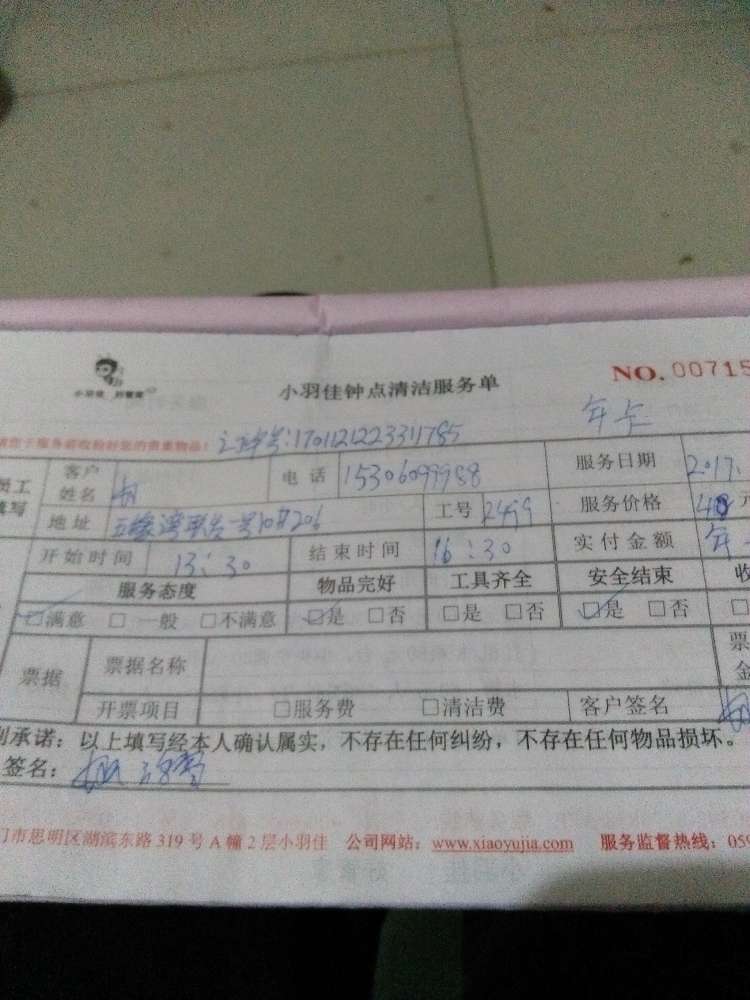 小羽佳 好管家
小羽佳钟点清洁服务单
NO. 00715
年卡
170112122331785
客户姓名 电话 15306099988 服务日期 2017.
地址 五缘湾 一号 206 工号 2499 服务价格
开始时间 13:30 结束时间 16:30 实付金额 年
服务态度 物品完好 工具齐全 安全结束 收
☑满意 □一般 □不满意 ☑是 □否 □是 □否 ☑是 □否
票据 票据名称 票
金
开票项目 □服务费 □清洁费 客户签名
承诺：以上填写经本人确认属实，不存在任何纠纷，不存在任何物品损坏。
签名：
门市思明区湖滨东路 319 号 A 幢 2 层小羽佳 公司网站：www.xiaoyujia.com 服务监督热线：059